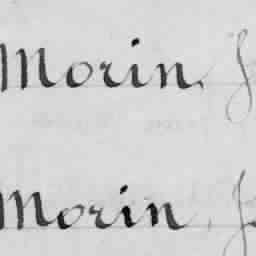 Morin, J
Morin, J